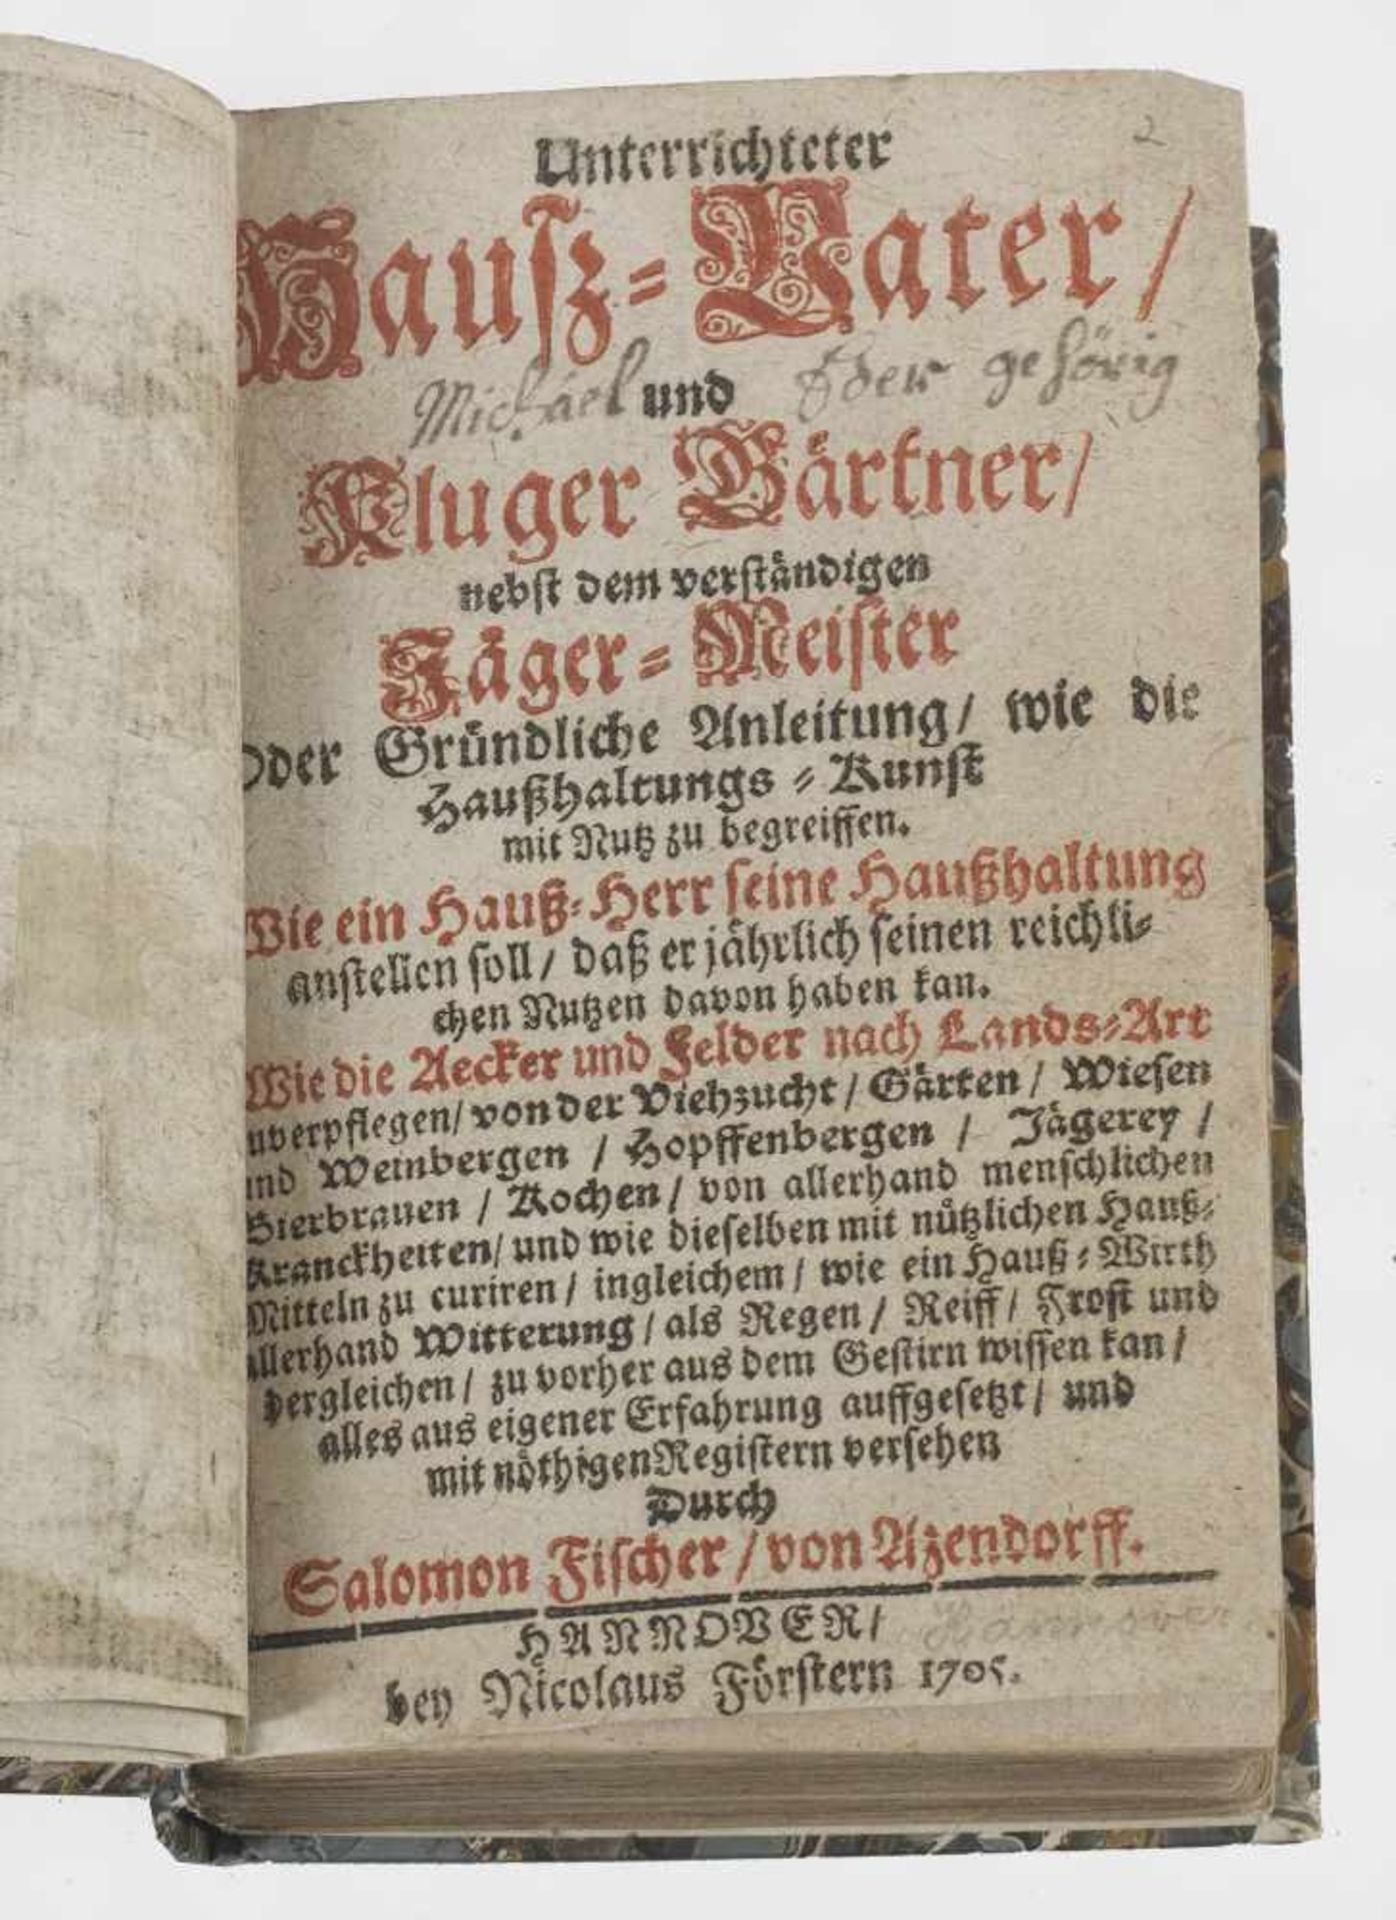 2
Unterrichteter
Hausz=Vater/
Michael und gehörig
Kluger Gärtner/
nebst dem verständigen
Jäger=Meister
Oder Gründliche Anleitung/ wie die
Haußhaltungs=Kunst
mit Nutz zu begreiffen.
Wie ein Hauß=Herr seine Haußhaltung
anstellen soll/ daß er jährlich seinen reichli=
chen Nutzen davon haben kan.
Wie die Aecker und Felder nach Lands=Art
uverpflegen/ von der Viehzucht/ Gärten/ Wiesen
und Weinbergen/ Hopffenbergen/ Jägerey/
Bierbrauen/ Kochen/ von allerhand menschlichen
Kranckheiten/ und wie dieselben mit nützlichen Hauß=
Mitteln zu curiren/ ingleichem/ wie ein Hauß=Wirth
allerhand Witterung/ als Regen/ Reiff/ Frost und
dergleichen/ zu vorher aus dem Gestirn wissen kan/
alles aus eigener Erfahrung auffgesetzt/ und
mit nöthigen Registern versehen
Durch
Salomon Fischer/ von Azendorff.
HANNOVER/ Hannover
bey Nicolaus Förstern 1705.